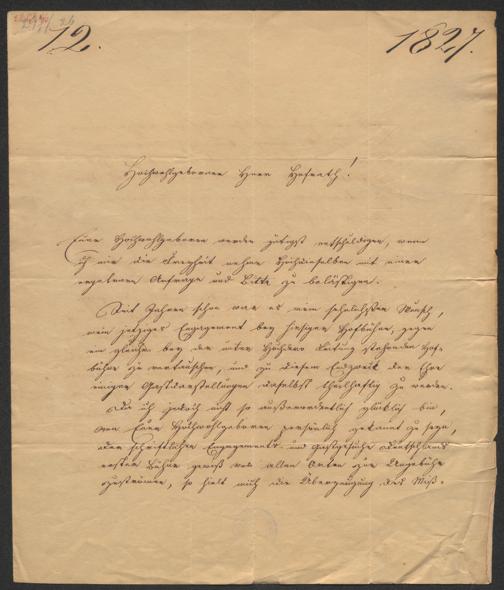 12.
1827.
Hochwohlgeborner Herr Hofrath!
Euer Hochwohlgeboren werden gütigst entschuldigen, wenn
ich mir die Freyheit nehme Hochdieselben mit einer
ergebenen Anfrage und Bitte zu belästigen.
Seit Jahren schon war es mein sehnlichster Wunsch,
mein jetziges Engagement bey hiesiger Hofbühne, gegen
ein gleiches bey der unter Hochdero Leitung stehenden Hof-
bühne zu vertauschen, und zu diesem Endzweck der Ehre
einiger Gastdarstellungen daselbst theilhaftig zu werden.
Da ich jedoch nicht so außerordentlich glücklich bin,
von Euer Hochwohlgeboren persönlich gekannt zu seyn,
aber schriftlichen Engagements- und Gastgesuche Deutschlands
ersten Bühne gewiß von allen Orten zur Ungebühr
zuströmen, so hielt mich die Überzeugung des Miß-